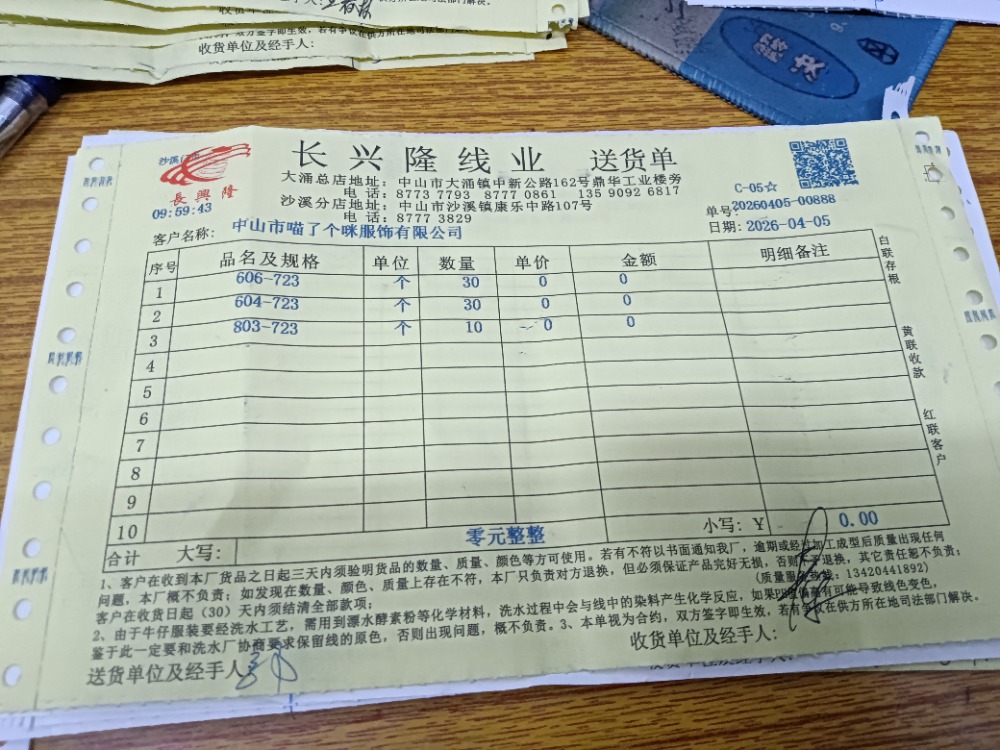 收货单位及经手人:
长兴隆线业 送货单
長興隆
大涌总店地址: 中山市大涌镇中新公路162号鼎华工业楼旁
电话: 8773 7793 8777 0861 135 9092 6817
沙溪分店地址: 中山市沙溪镇康乐中路107号
电话: 8777 3829
09:59:43
C-05☆
单号: 20260405-00888
日期: 2026-04-05
客户名称: 中山市喵了个咪服饰有限公司
序号 品名及规格 单位 数量 单价 金额 明细备注
1 606-723 个 30 0 0
2 604-723 个 30 0 0
3 803-723 个 10 0 0
4
5
6
7
8
9
10
合计 大写: 零元整整 小写: ¥ 0.00
白联存根
黄联收款
红联客户
1、客户在收到本厂货品之日起三天内须验明货品的数量、质量、颜色等方可使用。若有不符以书面通知我厂，逾期或经过加工成型后质量出现任何
问题，本厂概不负责: 如发现在数量、颜色、质量上存在不符，本厂只负责对方退换，但必须保证产品完好无损，否则不予退换，其它责任恕不负责;
客户在收货日起（30）天内须结清全部款项; (质量服务热线: 13420441892)
2、由于牛仔服装要经洗水工艺，需用到漂水酵素粉等化学材料，洗水过程中会与线中的染料产生化学反应，如果PH值偏高有可能导致线色变色，
鉴于此一定要和洗水厂协商要求保留线的原色，否则出现问题，概不负责。3、本单视为合约，双方签字即生效，若有争议在供方所在地司法部门解决。
送货单位及经手人:
收货单位及经手人: